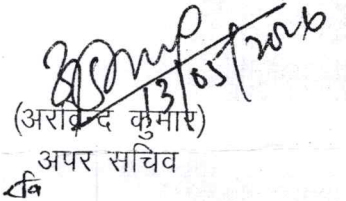 13/05/2026
(अरविन्द कुमार)
अपर सचिव